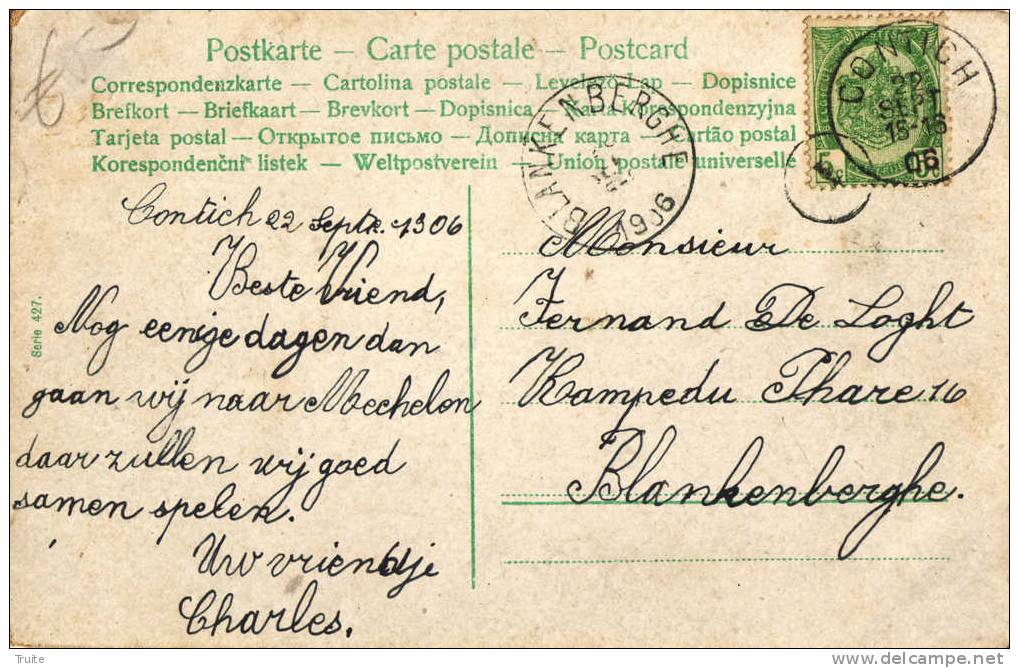 Postkarte — Carte postale — Postcard
Correspondenzkarte — Cartolina postale — Levelező-Lap — Dopisnice
Brefkort — Briefkaart — Brevkort — Dopisnica — Karta Korespondenzyjna
Tarjeta postal — Открытое письмо — Дописна карта — Cartão postal
Korespondenční listek — Weltpostverein — Union postale universelle
CONTICH
22
SEPT
15-16
06
BLANKENBERGHE
1906
5
Contich 22 Septr. 1306
Beste Vriend,
Nog eenige dagen dan
gaan wij naar Mechelen
daar zullen wij goed
samen spelen.
Uw vriendje
Charles.
Serie 427.
Monsieur
Fernand De Loght
Rampe du Phare 16
Blankenberghe.
Truite
delcampe.net